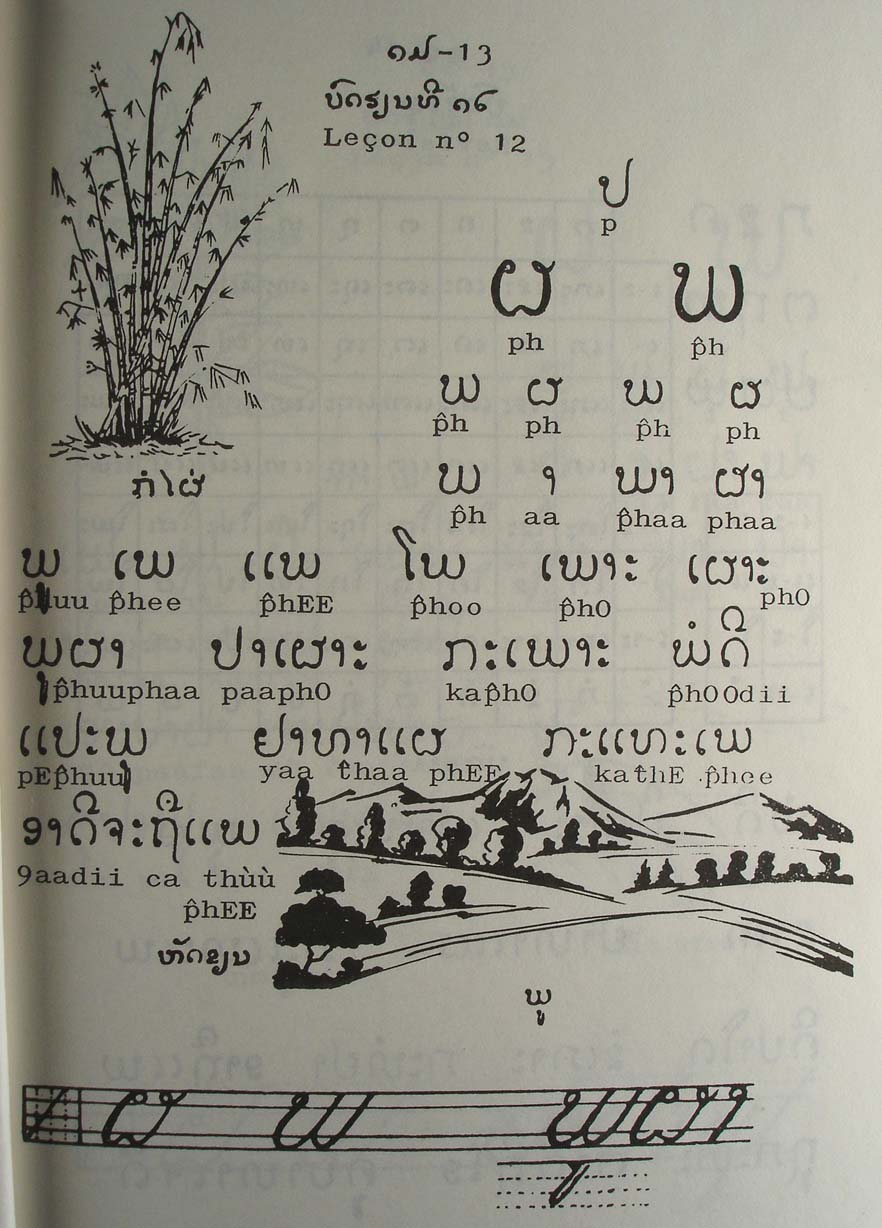 ໑໓-13
ບົດຮຽນທີ ໑໒
Leçon nº 12
ປ
p
ຜ ພ
ph p̂h
ພ ຜ ພ ຜ
p̂h ph p̂h ph
ກໍໄຜ່
ພ າ ພາ ຜາ
p̂h aa p̂haa phaa
ພູ ເພ ແພ ໂພ ເພາະ ເຜາະ
p̂huu p̂hee p̂hEE p̂hoo p̂hO phO
ພູຜາ ປາເຜາະ ກະເພາະ ພໍດີ
p̂huuphaa paaphO kap̂hO p̂hOOdii
ແປະພູ ຢາທາແຜ ກະແທະເພ
pEp̂huu yaa t̂haa phEE kat̂hE p̂hee
ອາດີຈະຖືແພ
9aadii ca thùù
p̂hEE
ຫັດຂຽນ
ພູ
ຜ ພ ພູຜາ